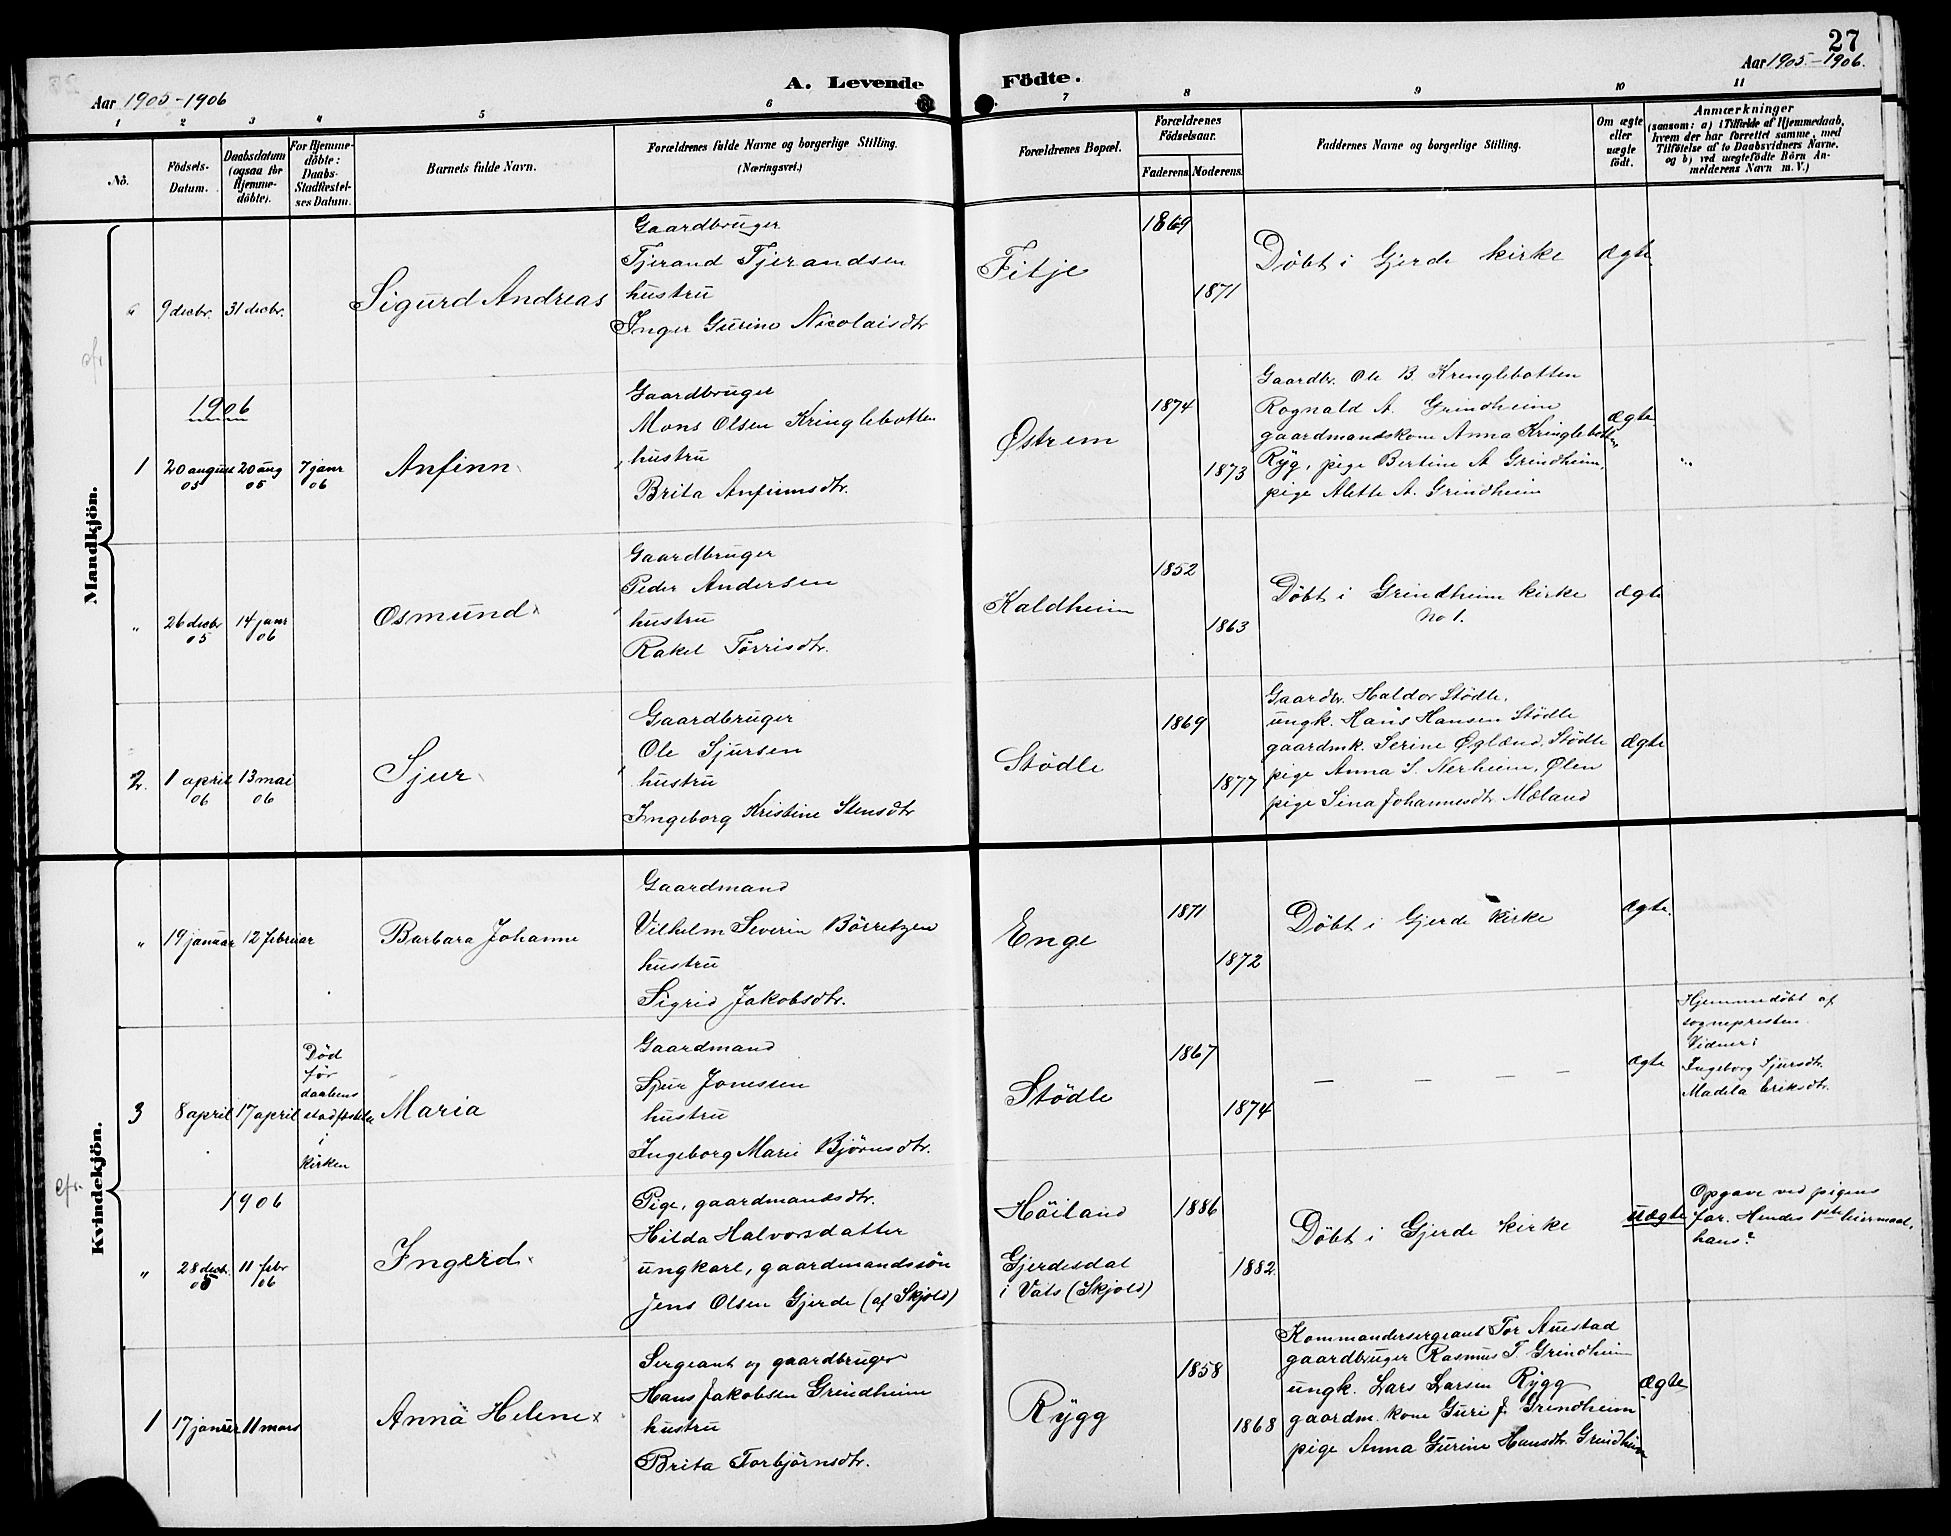 27
Aar 1905-1906
A. Levende Födte.
Aar 1905-1906.
1 2 3 4 5 6 7 8 9 10 11
No.
Födsels-Datum.
Daabsdatum (ogsaa for Hjemme-döbte).
For Hjemme-döbte: Daabs-Stadfæstel-ses Datum.
Barnets fulde Navn.
Forældrenes fulde Navne og borgerlige Stilling. (Næringsvei.)
Forældrenes Bopæl.
Forældrenes Födselsaar.
Faderens. Moderens.
Faddernes Navne og borgerlige Stilling.
Om ægte eller uægte födt.
Anmærkninger
(saasom: a) i Tilfælde af Hjemmedaab,
hvem der har forrettet samme, med
Tilföielse af to Daabsvidners Navne.
og b) ved uægtefödte Börn An-
melderens Navn m. V.)
Mandkjön.
9 decbr. 31 decbr.
Sigurd Andreas
Gaardbruger
Tjerand Tjerandsen
hustru
Inger Gurine Nicolaisdtr
Fitje
1869
1871
Døbt i Gjerde kirke
ægte
cfr.
1906
1
20 august 05
20 aug 05
7 janr 06
Anfinn
Gaardbruger
Mons Olsen Kringlebotten
hustru
Brita Anfinnsdtr.
Østrem
1874
1873
Gaardbr. Ole B. Kringlebotten
Rognald A. Grindheim
gaardmandskone Anna Kringlebotten
Ryg, pige Bertine A Grindheim,
pige Alette A. Grindheim
ægte
"
26 decbr 05
14 janr 06
Osmund
Gaardbruger
Peder Andersen
hustru
Rakel Tørrisdtr.
Kaldheim
1852
1863
Döbt i Grindheim kirke
No 1.
ægte
2.
1 april 06
13 mai 06
Sjur
Gaardbruger
Ole Sjursen
hustru
Ingeborg Kristine Stensdtr
Stödle
1869
1877
Gaardbr. Haldor Stödle.
ungk. Hans Hansen Stödle
gaardmk. Serine Øglænd, Stödle
pige Anna S. Nerheim, Ølen
pige Sina Johannesdtr. Mæland
ægte
Kvindekjön.
"
19 januar 12 februar
Barbara Johanne
Gaardmand
Vilhelm Severin Börretzen
hustru
Sigrid Jakobsdtr.
Enge
1871
1872
Döbt i Gjerde kirke
ægte.
3
8 april 17 april
Död
før
daabens
stadfæstelse
i
kirken
Maria
Gaardmand
Sjur Jonessen
hustru
Ingeborg Marie Bjørnsdtr.
Stödle
1867
1874
— — — — —
ægte
Hjemmedöbt af
sognepresten.
Vidner:
Ingeborg Sjursdtr.
Madela Eriksdtr.
cfr.
1906
"
28 decbr. 05
11 febr 06
Ingerd
Pige, gaardmandsdtr.
Hilda Halvorsdatter
ungkarl, gaardmandssön
Jens Olsen Gjerde (af Skjold)
Höiland
Gjerdesdal
i Vats (Skjold)
1886
1882
Döbt i Gjerde kirke
uægte
Opgave ved pigens
far. Hendes 1ste leiermaal,
hans?
1
17 januar 11 mars
Anna Helene
Sergeant og gaardbruger
Hans Jakobsen Grindheim
hustru
Brita Torbjörnsdtr.
Rygg
1858
1868
Kommandersergeant Tor Austad
gaardbruger Rasmus T. Grindheim
ungk. Lars Larsen Rygg
gaardm. kone Guri J. Grindheim
pige Anna Gurine Hansdtr. Grindheim
ægte